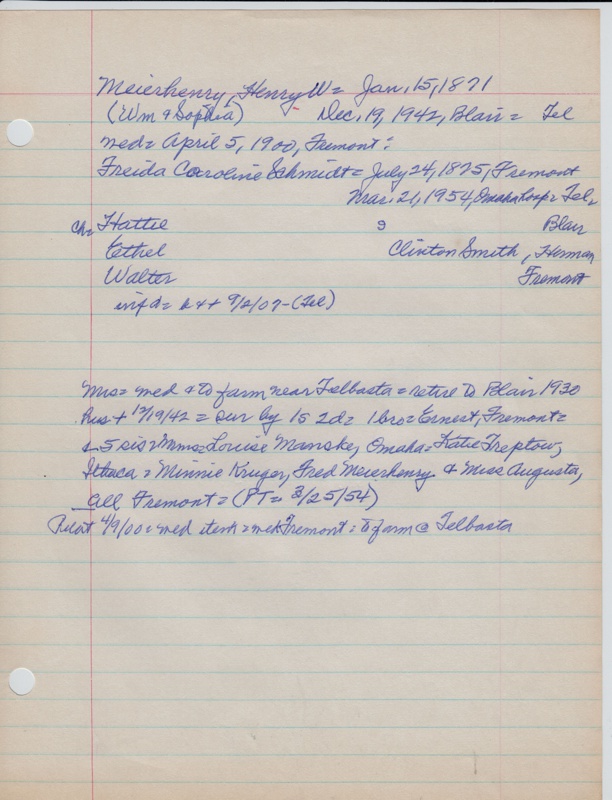 Meierhenry, Henry W = Jan. 15, 1871
(Wm & Sophia) Dec. 19, 1942, Blair = Tel
wed = April 5, 1900, Fremont:
Freida Caroline Schmidt = July 24, 1875, Fremont
Mar. 21, 1954, Omaha hosp = Tel.
ch = Hattie 9 Blair
Ethel Clinton Smith, Herman
Walter Fremont
inf d = b & + 9/2/07 - (Tel)
Mrs = wed & to farm near Telbasta = retire to Blair 1930
hus + 12/19/42 = sur by 1s 2d = 1 bro = Ernest, Fremont =
& 5 sis = Mmes = Louise Manske, Omaha = Katie Treptow,
Ithaca = Minnie Kruger, Fred Meierhenry & Miss Augusta,
all Fremont = (PT = 3/25/54)
Pilot 4/9/00 = wed item = wed Fremont = to farm @ Telbasta